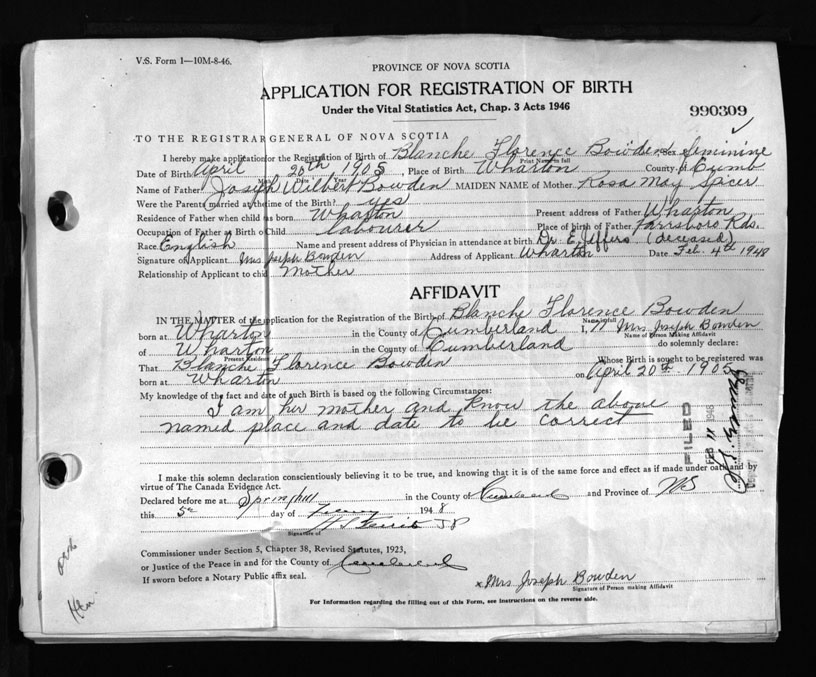 V.S. Form 1—10M-8-46.
PROVINCE OF NOVA SCOTIA
APPLICATION FOR REGISTRATION OF BIRTH
Under the Vital Statistics Act, Chap. 3 Acts 1946
990309
TO THE REGISTRAR GENERAL OF NOVA SCOTIA
I hereby make application for the Registration of Birth of Blanche Florence Bowden Sex feminine
Print Name in full
Date of Birth April 20th 1905, Place of Birth Wharton County of Cumb
Month Date Year
Name of Father Joseph Wilbert Bowden MAIDEN NAME of Mother Rosa May Spicer
Were the Parents married at the time of the Birth? yes
Residence of Father when child was born Wharton Present address of Father Wharton
Occupation of Father at Birth of Child labourer Place of birth of Father Parrsboro Rds.
Race English Name and present address of Physician in attendance at birth Dr. E. Jeffers (deceased)
Signature of Applicant Mrs Joseph Bowden Address of Applicant Wharton Date Feb. 4th 1948
Relationship of Applicant to child Mother
AFFIDAVIT
IN THE MATTER of the application for the Registration of the Birth of Blanche Florence Bowden
Name in full
born at Wharton in the County of Cumberland I, Mrs Joseph Bowden
Name of Person Making Affidavit
of Wharton in the County of Cumberland do solemnly declare:
Present Residence
That Blanche Florence Bowden Whose Birth is sought to be registered was
born at Wharton on April 20th 1905
My knowledge of the fact and date of such Birth is based on the following Circumstances:
I am her mother and know the above
named place and date to be correct
FILED
FEB 11 1948
I make this solemn declaration conscientiously believing it to be true, and knowing that it is of the same force and effect as if made under oath and by
virtue of The Canada Evidence Act.
Declared before me at Springhill in the County of Cumberland and Province of N S
this 5th day of 1948
J P
Signature of
Commissioner under Section 5, Chapter 38, Revised Statutes, 1923,
or Justice of the Peace in and for the County of Cumberland
If sworn before a Notary Public affix seal.
x Mrs Joseph Bowden
Signature of Person making Affidavit
For Information regarding the filling out of this Form, see instructions on the reverse side.